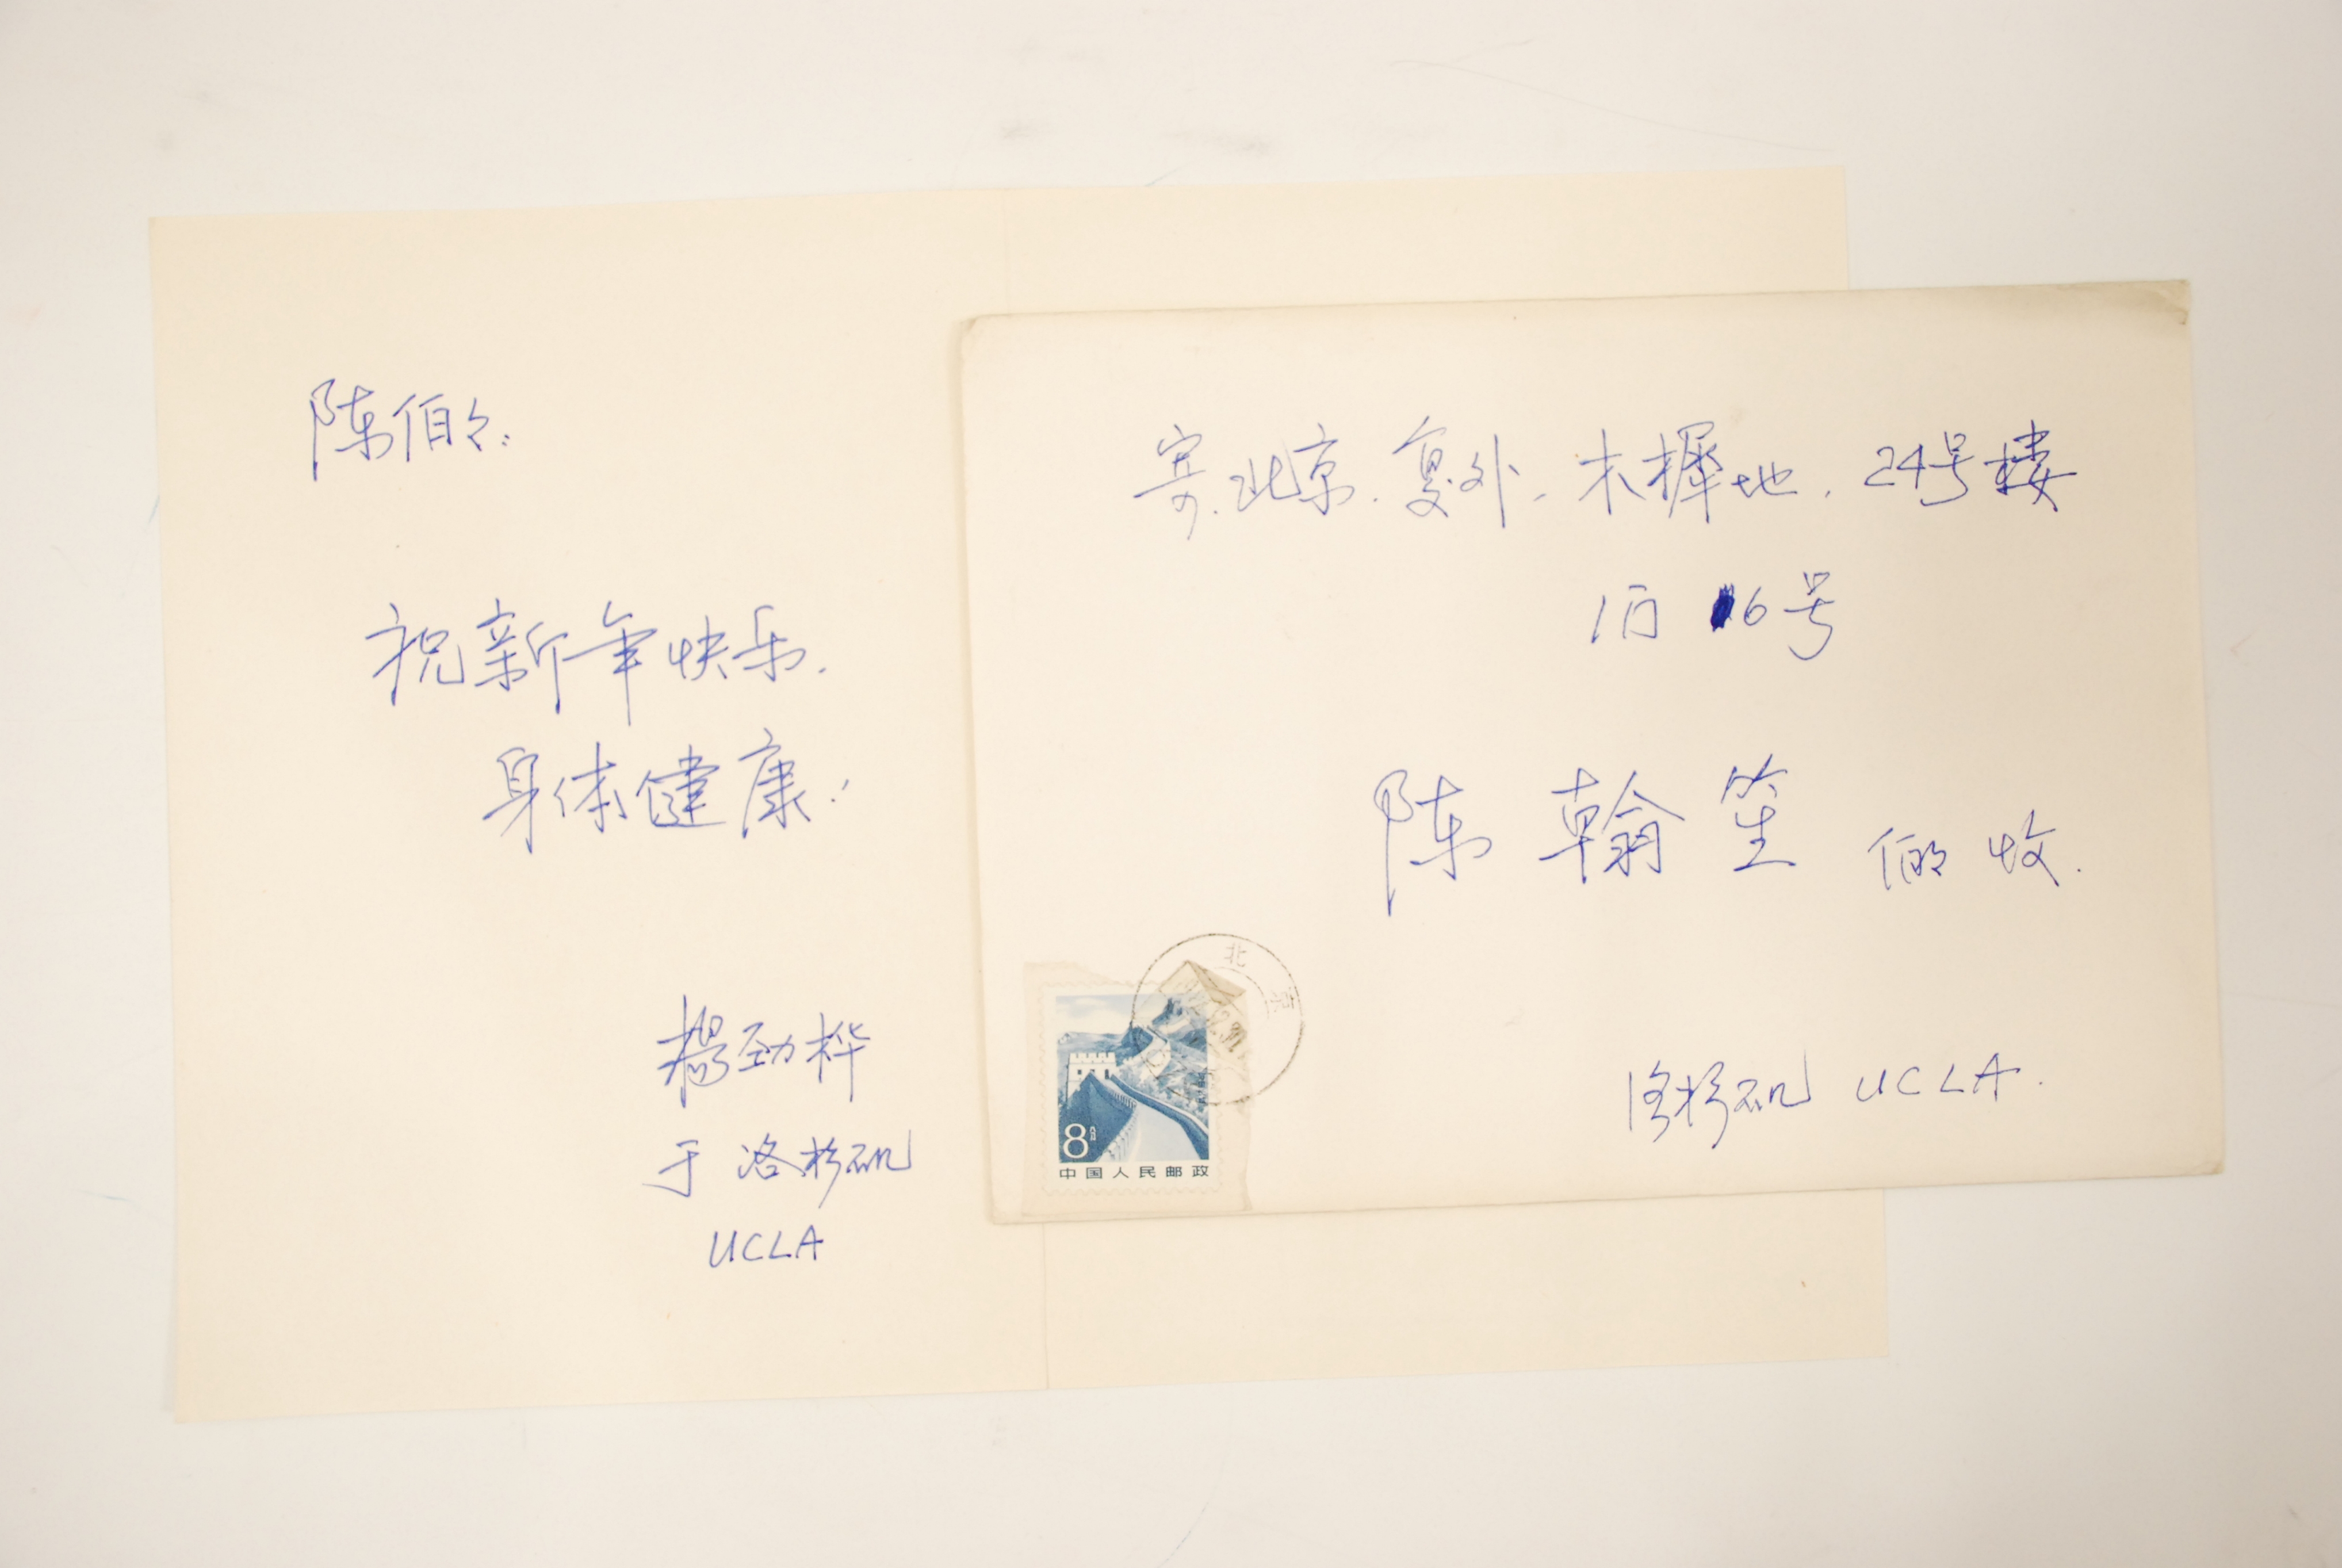 陈伯々:
祝新年快乐.
身体健康!
杨劲桦
于洛杉矶
UCLA
寄.北京.复外.木樨地.24号楼
1门 6号
陈翰笙 伯々 收.
洛杉矶 UCLA.
北京
8分
中国人民邮政